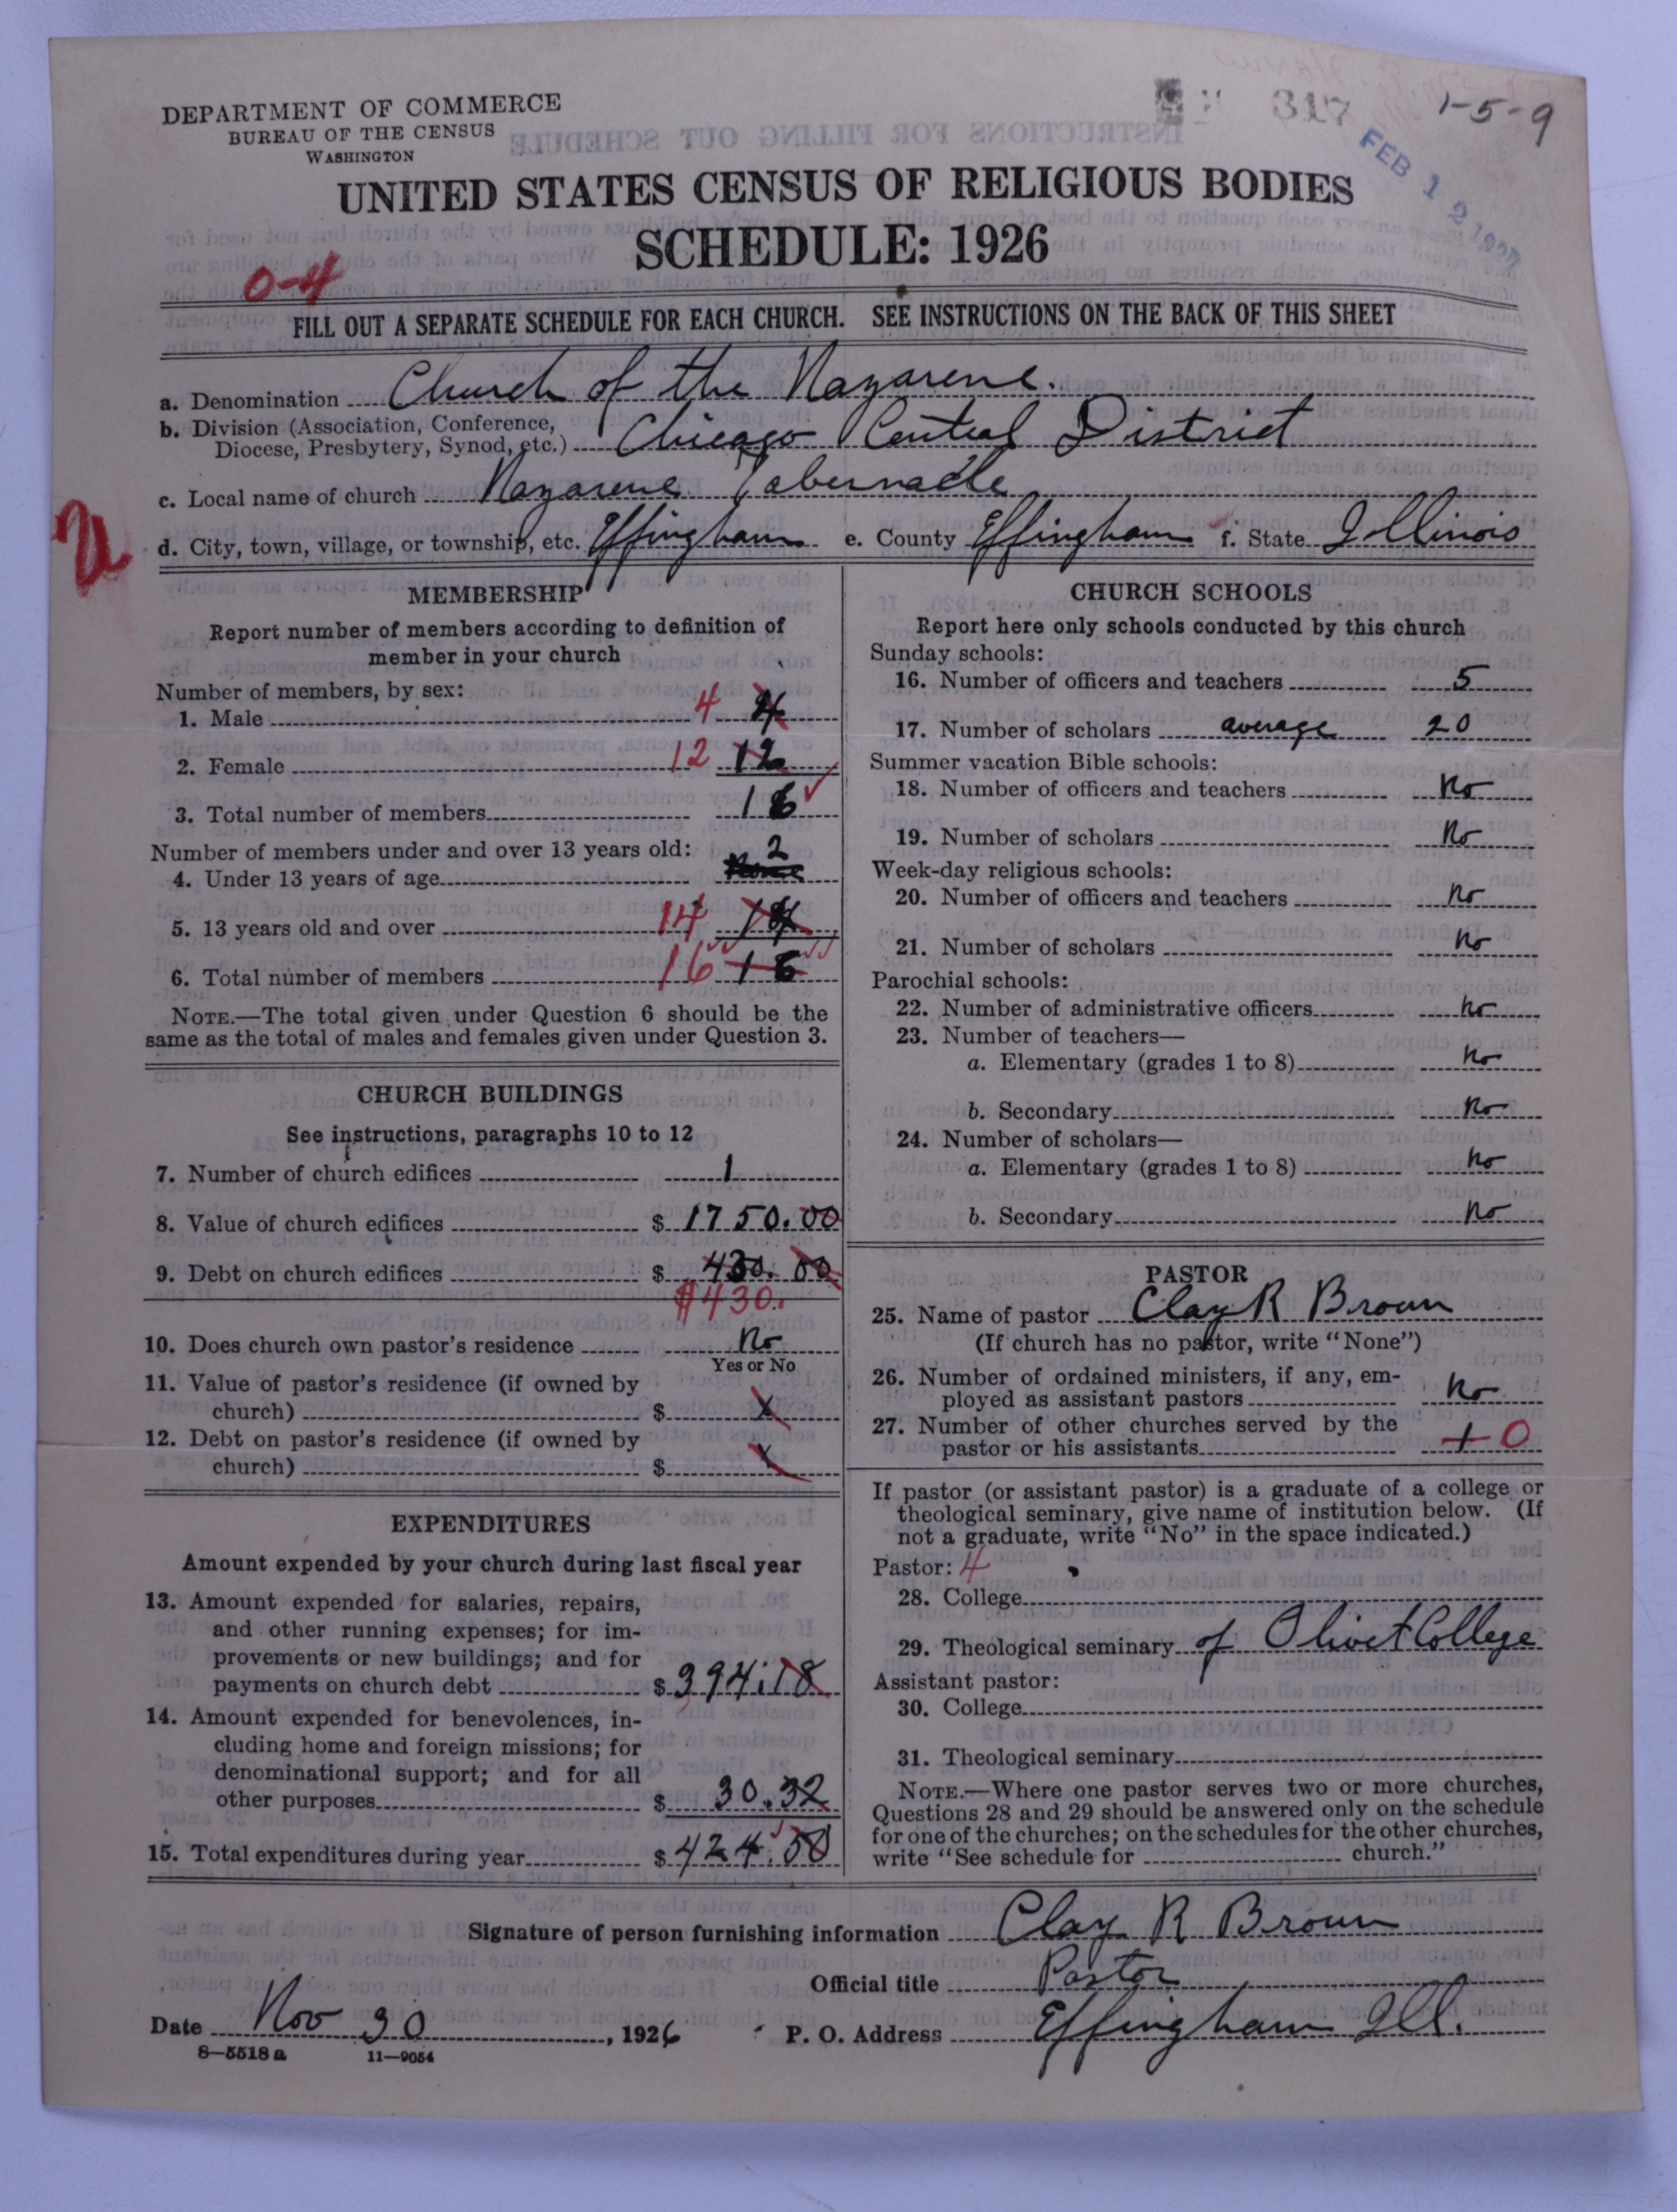 DEPARTMENT OF COMMERCE
BUREAU OF THE CENSUS
WASHINGTON
317
1-5-9
FEB 12 1927
UNITED STATES CENSUS OF RELIGIOUS BODIES
SCHEDULE: 1926
0-4
FILL OUT A SEPARATE SCHEDULE FOR EACH CHURCH. SEE INSTRUCTIONS ON THE BACK OF THIS SHEET
a. Denomination Church of the Nazarene.
b. Division (Association, Conference,
Diocese, Presbytery, Synod, etc.) Chicago Central District
c. Local name of church Nazarene Tabernacle
d. City, town, village, or township, etc. Effingham e. County Effingham f. State Illinois
MEMBERSHIP
Report number of members according to definition of
member in your church
Number of members, by sex:
1. Male 4 4
2. Female 12 12
3. Total number of members 16
Number of members under and over 13 years old:
4. Under 13 years of age 2
5. 13 years old and over 14 14
6. Total number of members 16 16
NOTE.—The total given under Question 6 should be the
same as the total of males and females given under Question 3.
CHURCH BUILDINGS
See instructions, paragraphs 10 to 12
7. Number of church edifices 1
8. Value of church edifices $ 1750.00
9. Debt on church edifices $ 430.00
$430.
10. Does church own pastor's residence No
Yes or No
11. Value of pastor's residence (if owned by
church) $ x
12. Debt on pastor's residence (if owned by
church) $ x
EXPENDITURES
Amount expended by your church during last fiscal year
13. Amount expended for salaries, repairs,
and other running expenses; for im-
provements or new buildings; and for
payments on church debt $ 394.18
14. Amount expended for benevolences, in-
cluding home and foreign missions; for
denominational support; and for all
other purposes $ 30.32
15. Total expenditures during year $ 424.50
CHURCH SCHOOLS
Report here only schools conducted by this church
Sunday schools:
16. Number of officers and teachers 5
17. Number of scholars average 20
Summer vacation Bible schools:
18. Number of officers and teachers No
19. Number of scholars No
Week-day religious schools:
20. Number of officers and teachers No
21. Number of scholars No
Parochial schools:
22. Number of administrative officers No
23. Number of teachers—
a. Elementary (grades 1 to 8) No
b. Secondary No
24. Number of scholars—
a. Elementary (grades 1 to 8) No
b. Secondary No
PASTOR
25. Name of pastor Clay R Brown
(If church has no pastor, write "None")
26. Number of ordained ministers, if any, em-
ployed as assistant pastors No
27. Number of other churches served by the
pastor or his assistants 1 0
If pastor (or assistant pastor) is a graduate of a college or
theological seminary, give name of institution below. (If
not a graduate, write "No" in the space indicated.)
Pastor: 4
28. College
29. Theological seminary of Olivet College
Assistant pastor:
30. College
31. Theological seminary
NOTE.—Where one pastor serves two or more churches,
Questions 28 and 29 should be answered only on the schedule
for one of the churches; on the schedules for the other churches,
write "See schedule for church."
Signature of person furnishing information Clay R Brown
Official title Pastor
Date Nov 30, 1926 P. O. Address Effingham Ill.
8—5518a 11—9054